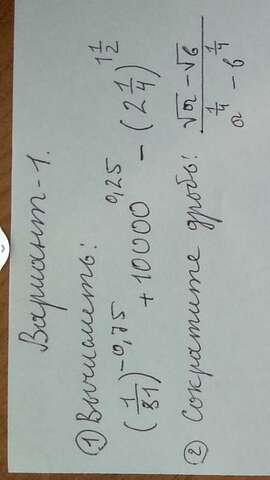 Вариант-1.
① Вычислить:
(1/81)^-0,75 + 10000^0,25 - (2 1/4)^1 1/2
② Сократите дробь: (√a - √b)/(a^1/4 - b^1/4)